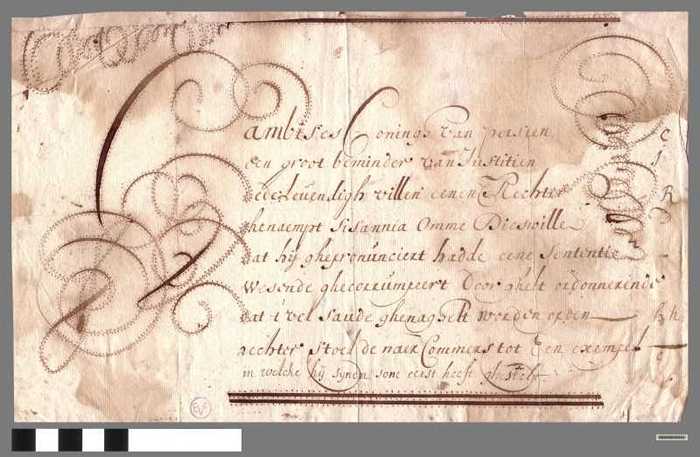 Cambises Coningh van persien
een groot beminder van Justitien
dede levendigh villen eenen Rechter
ghenaempt Sisannia Omme Dieswille
dat hij ghepronuncieert hadde eene sententie
Wesende ghecorrumpeert Door ghelt ordonnerende
dat t'vel saude ghenaghelt worden op den
rechter stoel de naer Commers tot Een exempel
in welcke hij synen sone eerst heeft ghestelt